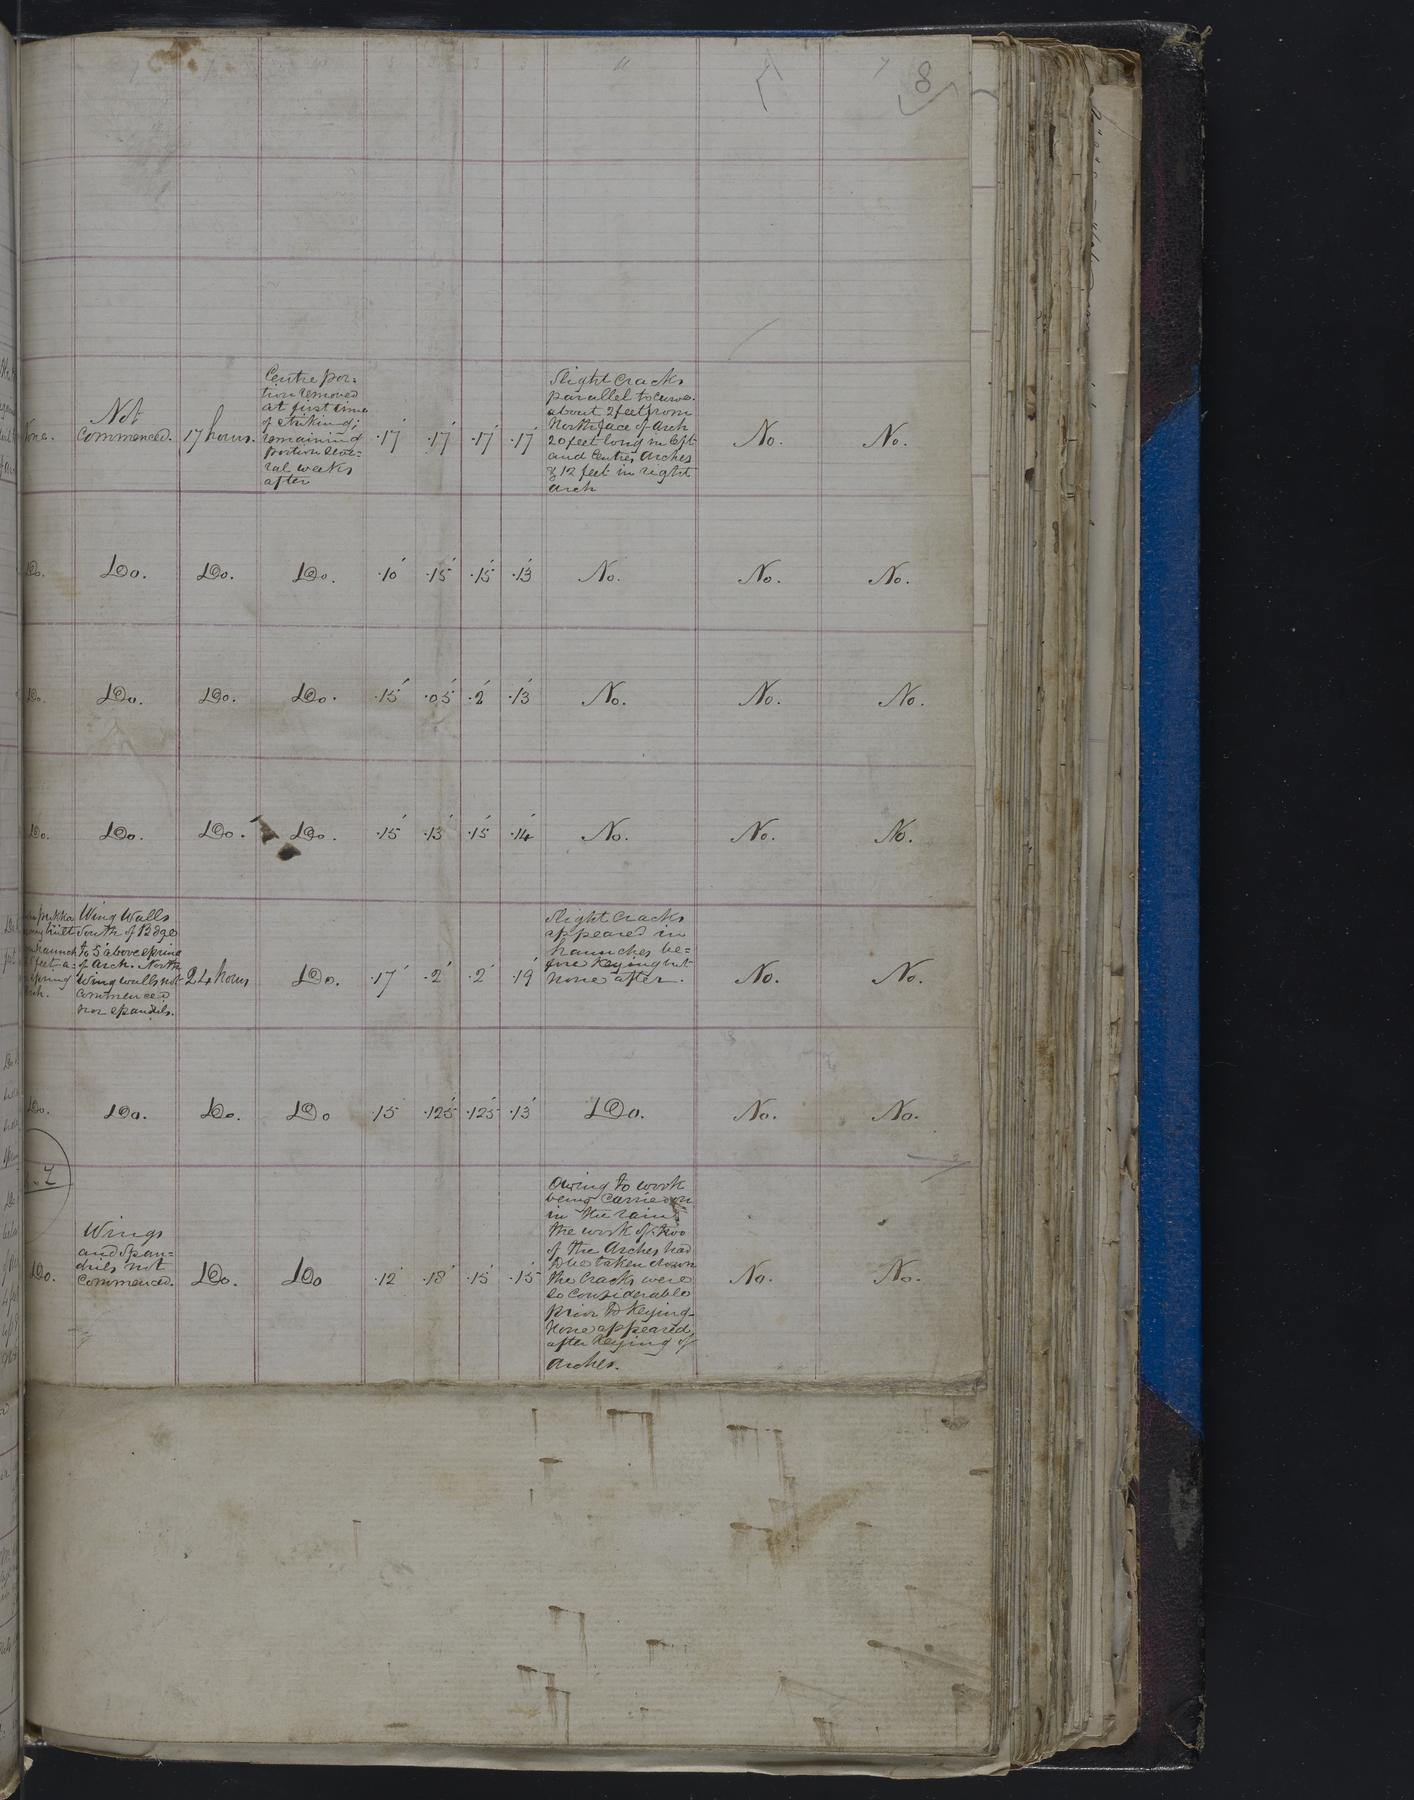 8
Not
Commenced.
17 hours.
Centre por-
tion removed
at first time
of striking;
remaining
portion seve-
ral weeks
after
.17' .17' .17' .17'
Slight Cracks
parallel to curve
about 2 feet from
North face of Arch
20 feet long in left
and Centre Arches
& 12 feet in right
Arch
No. No.
Do. Do. Do. Do. .10' .15' .15' .13' No. No. No.
Do. Do. Do. Do. .15' .05' .2' .13' No. No. No.
Do. Do. Do. Do. .15' .13' .15' .14' No. No. No.
Wing Walls
South of Bdge
to 5' above spring
of Arch. North
Wing walls not
Commenced
nor spandrils.
24 hours
Do. .17' .2' .2' .19'
Slight Cracks
appeared in
haunches be-
fore Keying but
none after.
No. No.
Do. Do. Do. Do .15 .125' .125' .13' Do. No. No.
Do.
Wings
and Span-
drils not
Commenced.
Do. Do .12' .18' .15' .15'
Owing to work
being carried on
in the rains
the work of two
of the Arches had
to be taken down
the Cracks were
so Considerable
prior to Keying-
None appeared
after Keying of
Arches.
No. No.